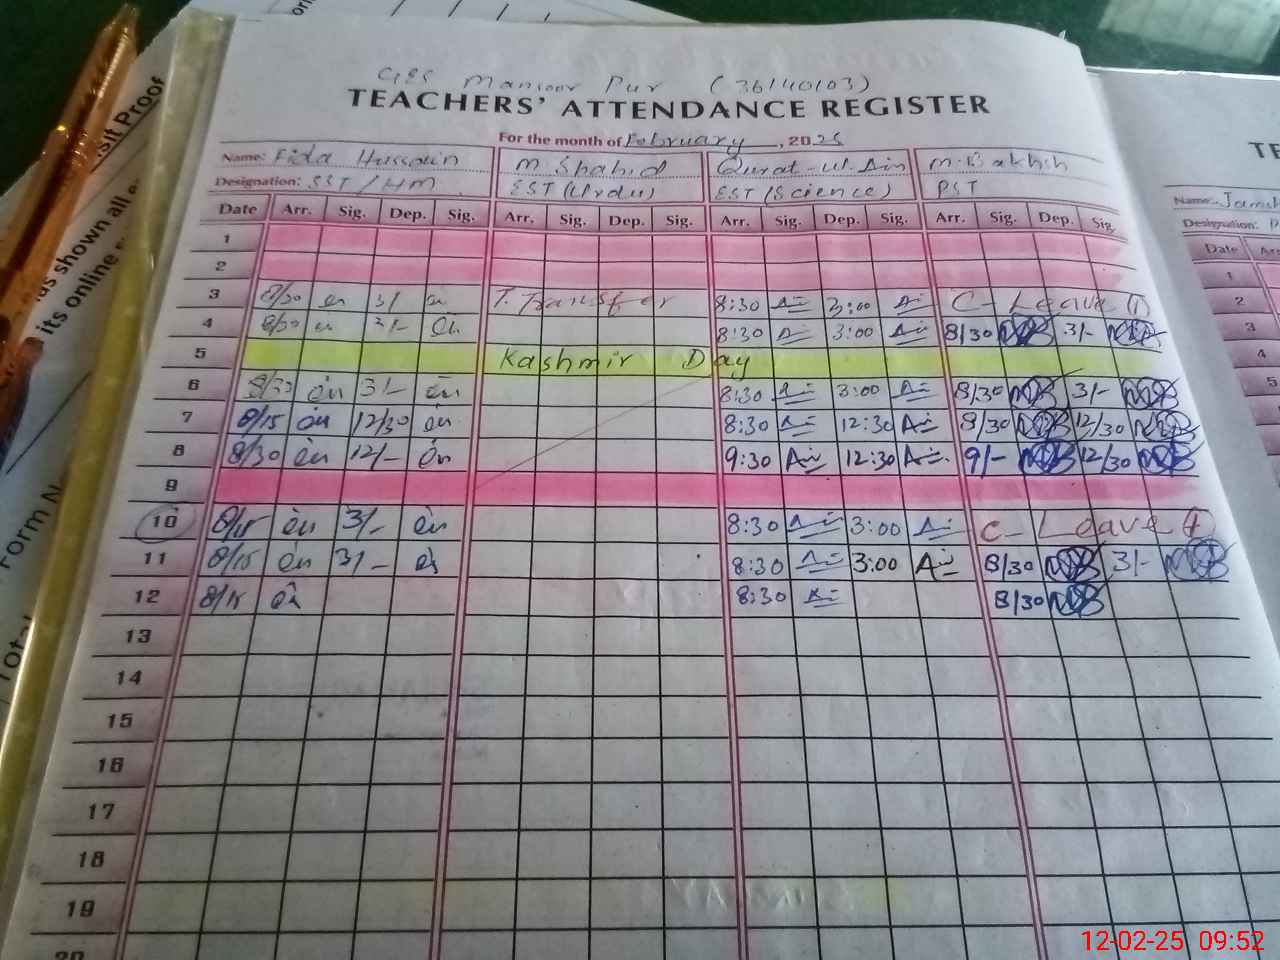 GES Mansoor Pur (36140103)
TEACHERS' ATTENDANCE REGISTER
For the month of February, 2025
Name: Fida Hussain M. Shahid Qurat-ul-Ain M. Bakhsh
Designation: SST/HM EST (Urdu) EST (Science) PST
Date Arr. Sig. Dep. Sig. Arr. Sig. Dep. Sig. Arr. Sig. Dep. Sig. Arr. Sig. Dep. Sig.
1
2
3 8/30 3/- T. Transfer 8:30 3:00 C-Leave 1
4 8/30 3/- 8:30 3:00 8/30 3/-
5 Kashmir Day
6 8/30 3/- 8:30 3:00 8/30 3/-
7 8/15 12/30 8:30 12:30 8/30 12/30
8 8/30 12/- 9:30 12:30 9/- 12/30
9
10 8/15 3/- 8:30 3:00 C-Leave
11 8/15 3/- 8:30 3:00 8/30 3/-
12 8/15 8:30 8/30
13
14
15
16
17
18
19
20
Name:
Designation:
Date
1
2
3
4
5
sit Proof
as shown all
its online
Form N
Total
12-02-25 09:52